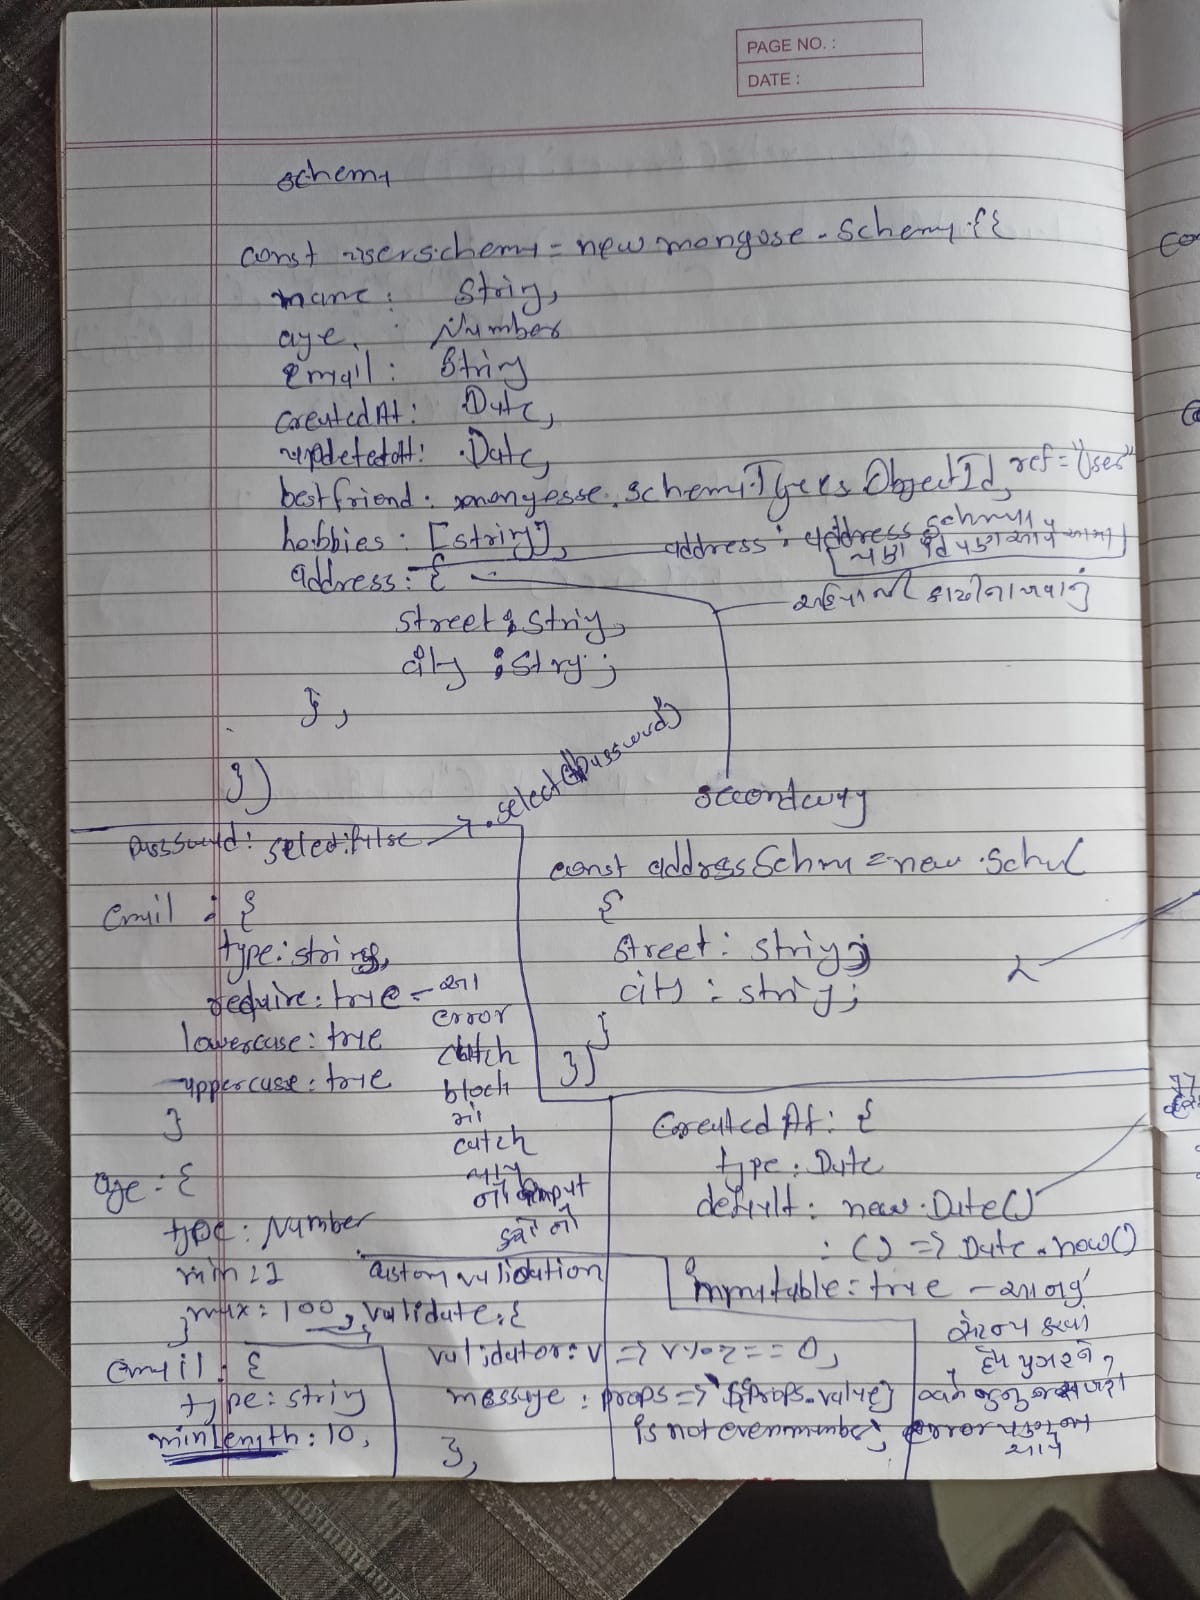 PAGE NO. :
DATE :
schema
const userschema = new mongose. Schema {{
name : String,
age : Number
email : String
createdAt : Date,
updetedAt : Date,
bestfriend : mongesse. Schema.Types ObjectId, ref = "User"
hobbies : [string],
address : address Schma
address : {
street : String,
city : String;
},
})
.select("+password")
second way
password : select: false
const addressSchm = new .Schu(
{
street : string;
city : string;
}
})
email : {
type : string,
require : true - આ
error
catch
block
catch
lowercase : true
uppercase : true
}
age : {
type : Number
min : 1
max : 100, validate : {
}
custom validation
validator : v => v % 2 == 0,
message : props => `${props.value}
is not even number`,
},
email : {
type : string
minlength : 10,
createdAt : {
type : Date
default : new Date()
: () => Date.now()
immutable = true -
error